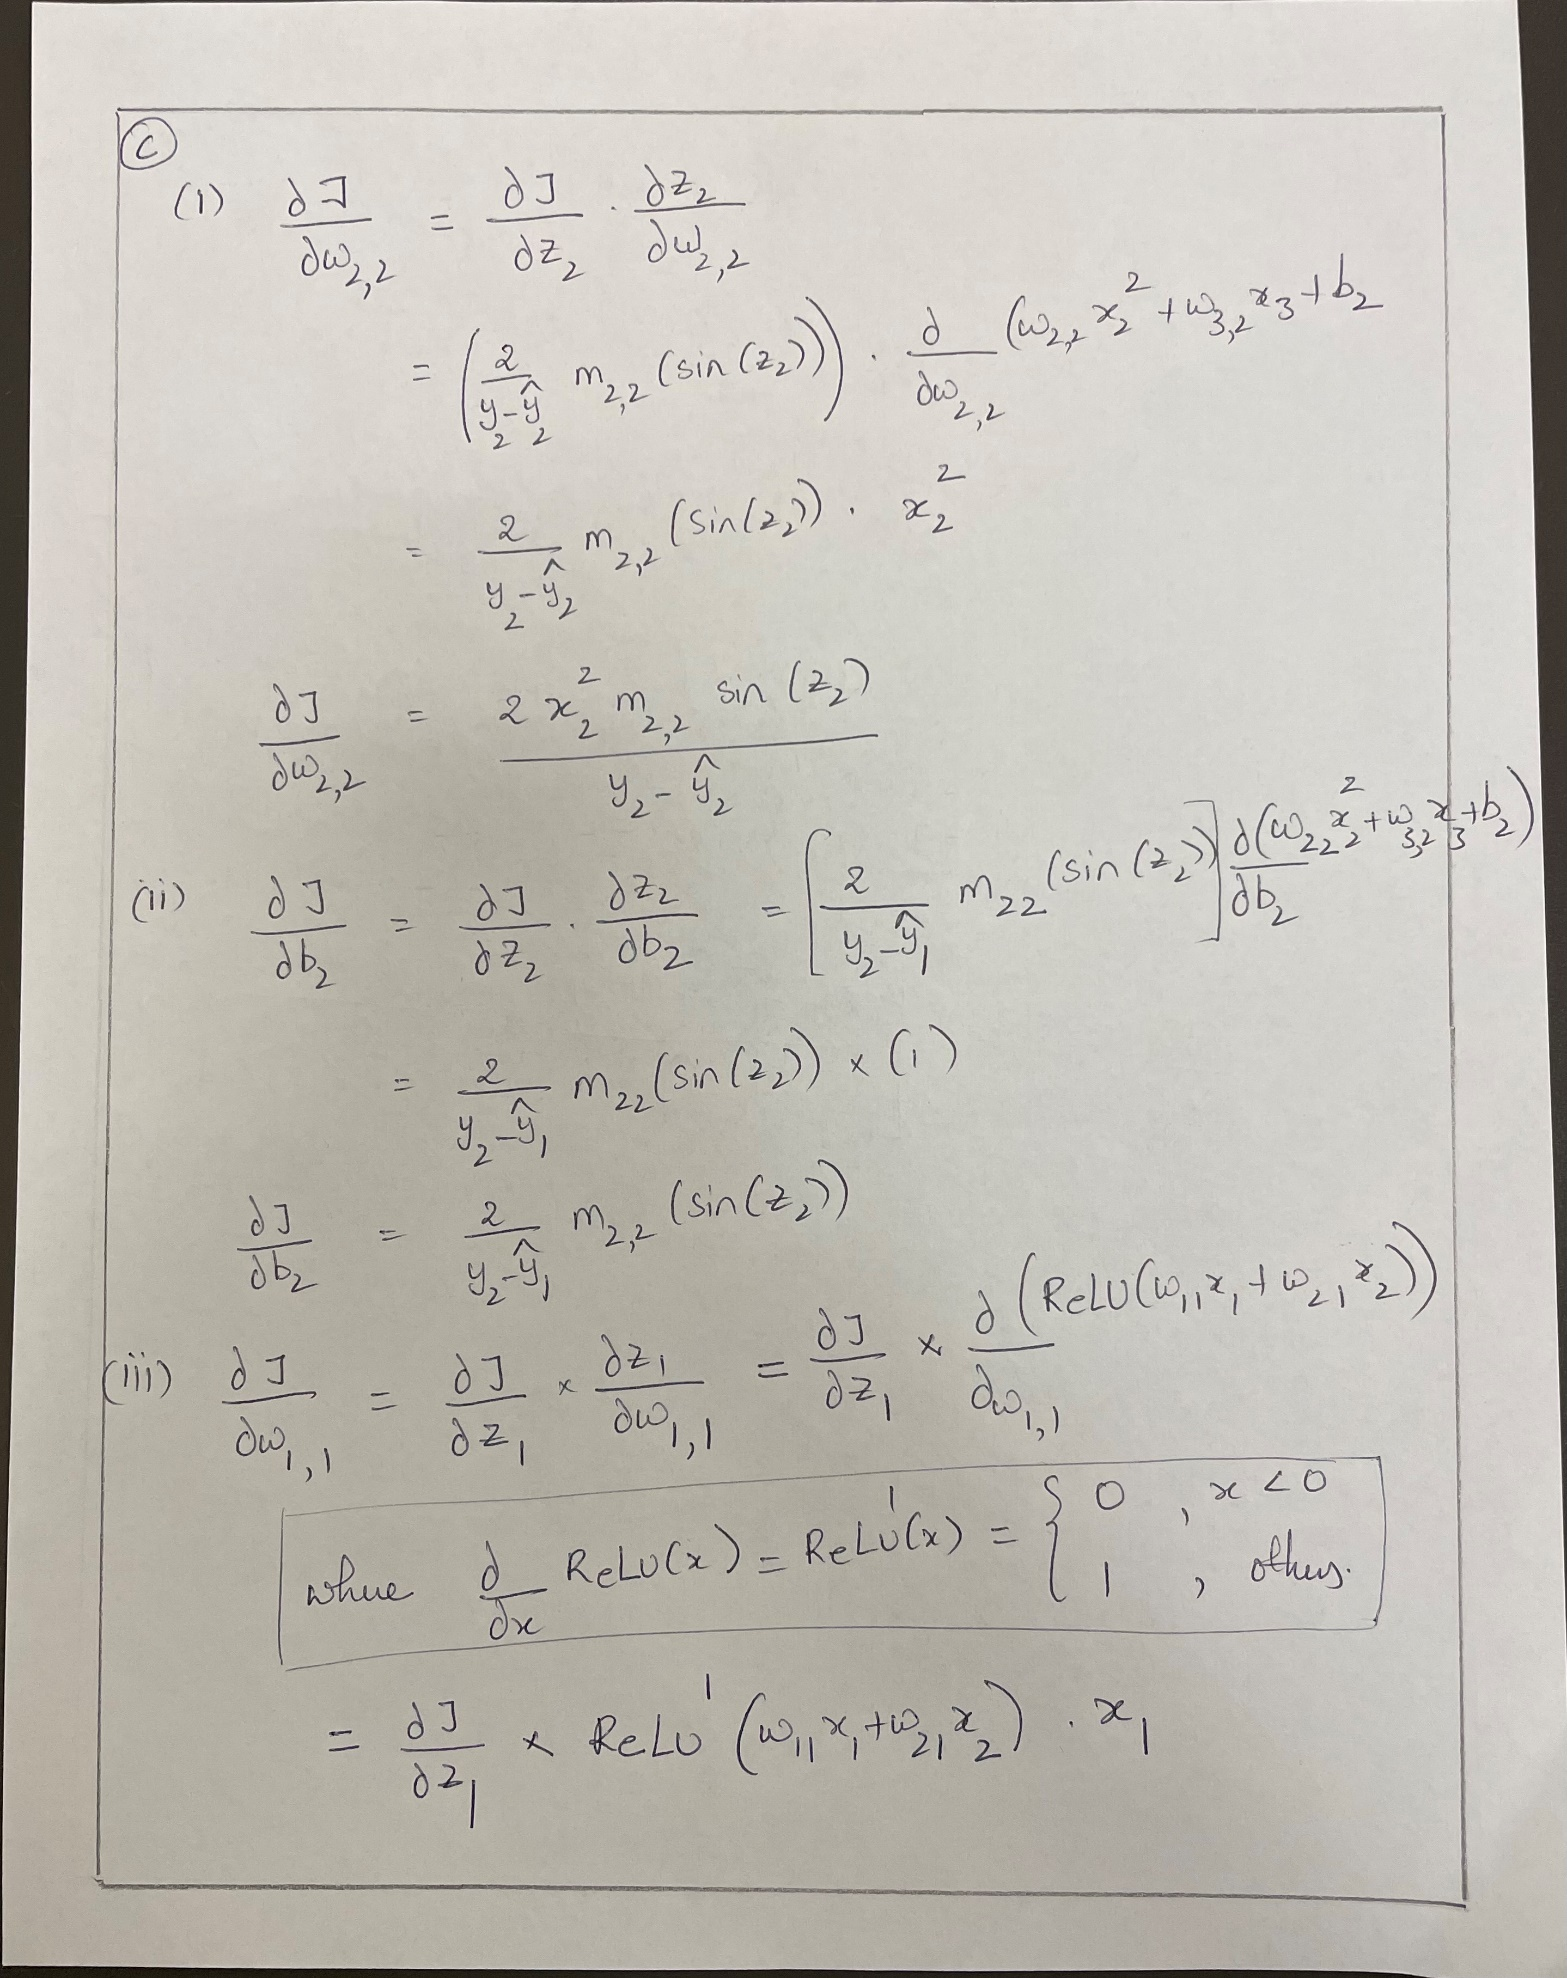 (c)
(i) ∂J/∂w₂,₂ = ∂J/∂z₂ · ∂z₂/∂w₂,₂
= (2/(y₂-ŷ₂) m₂,₂ (sin(z₂))) · ∂/∂w₂,₂ (w₂,₂ x₂² + w₃,₂ x₃ + b₂
= 2/(y₂-ŷ₂) m₂,₂ (sin(z₂)) · x₂²
∂J/∂w₂,₂ = 2 x₂² m₂,₂ sin (z₂) / (y₂ - ŷ₂)
(ii) ∂J/∂b₂ = ∂J/∂z₂ · ∂z₂/∂b₂ = [2/(y₂-ŷ₁) m₂₂ (sin(z₂))] ∂(w₂₂ x₂² + w₃,₂ x₃ + b₂)/∂b₂
= 2/(y₂-ŷ₁) m₂₂ (sin(z₂)) × (1)
∂J/∂b₂ = 2/(y₂-ŷ₁) m₂,₂ (sin(z₂))
(iii) ∂J/∂w₁,₁ = ∂J/∂z₁ × ∂z₁/∂w₁,₁ = ∂J/∂z₁ × ∂/∂w₁,₁ (ReLU(w₁₁x₁ + w₂₁x₂))
where ∂/∂x ReLU(x) = ReLU'(x) = { 0 , x < 0
1 , others.
= ∂J/∂z₁ × ReLU' (w₁₁x₁ + w₂₁x₂) · x₁